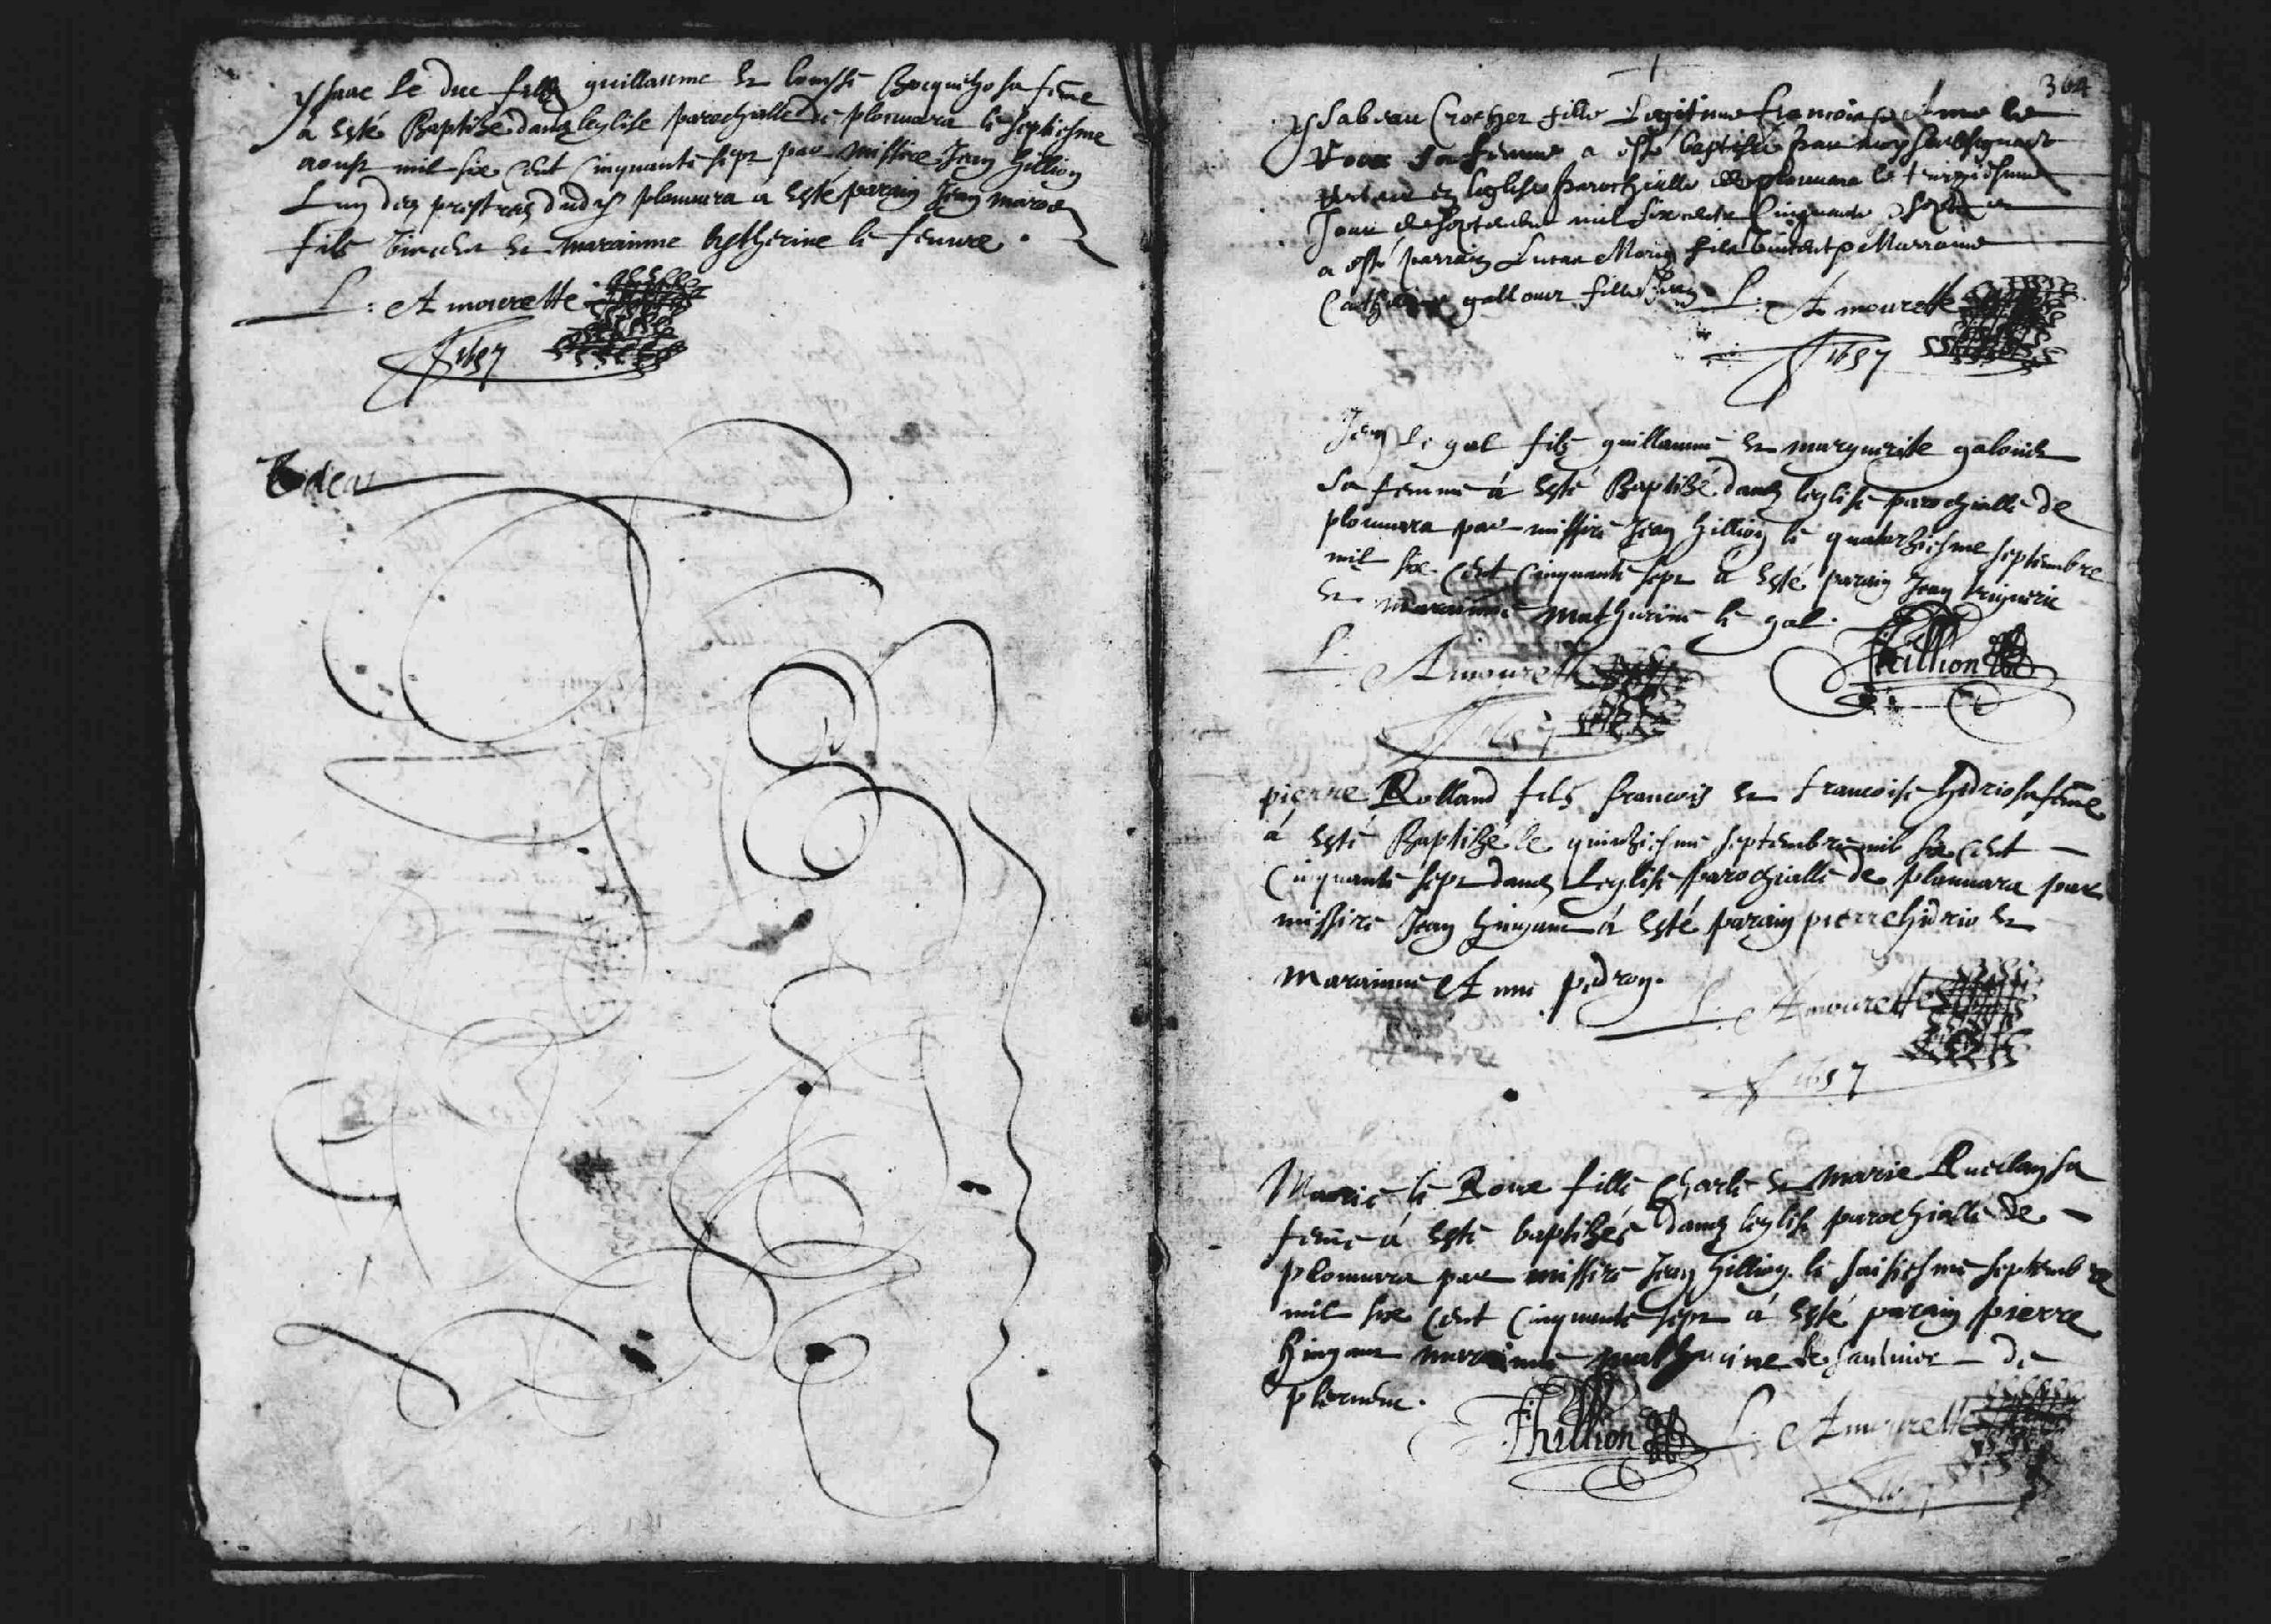 ysaac le duc filz guillaume et louisse Bocquého sa feme
à Esté Baptizé danz leglise parochialle de plouuara le septiesme
aoust mil six cent cinquante sept par missire Jean hillion
Lun des prestres dud plouuara a Esté parain Jean
fils vincent et marainne Catherine le feuure .
L : Amourette
1657
304
ysabeau Crocher fille Legitime francois Anne le
Roux sa femme a esté baptisée par moy soubsignant
en leglise parochialle de plouuara le treiziesme
Jour de septembre mil six cents cinquante sept
a esté parrain Lucas Morin fils vincent Marraine
Catherine gallouer fille Jean L : Amourette
1657
Jean le gal filz guillaume et marguerite
sa femme à Esté Baptizé danz leglise parochialle de
plouuara par missire Jean hillion le quatorziesme septembre
mil six cent cinquante sept a Esté parain Jean
et marainne mathurine le gal .
L : Amourette hillion
1657
pierre Rolland filz francois et francoise hidrio sa feme
à Esté Baptizé le quinziesme septembre mil six cent
cinquante sept danz Leglise parochialle de plouuara par
missire Jean hingant à Esté parain pierre hidrio et
marainne Anne pedron .
L : Amourette
1657
Marie le Roux fille Charle et marie Ruellan sa
feme à Esté baptizée danz leglise parochialle de
plouuara par missire Jean hillion le saisiesme septembre
mil six cent cinquante sept à Esté parain pierre
hingant marainne mathurine le saulnier de
plerneuc .
hillion L : Amourette
1657